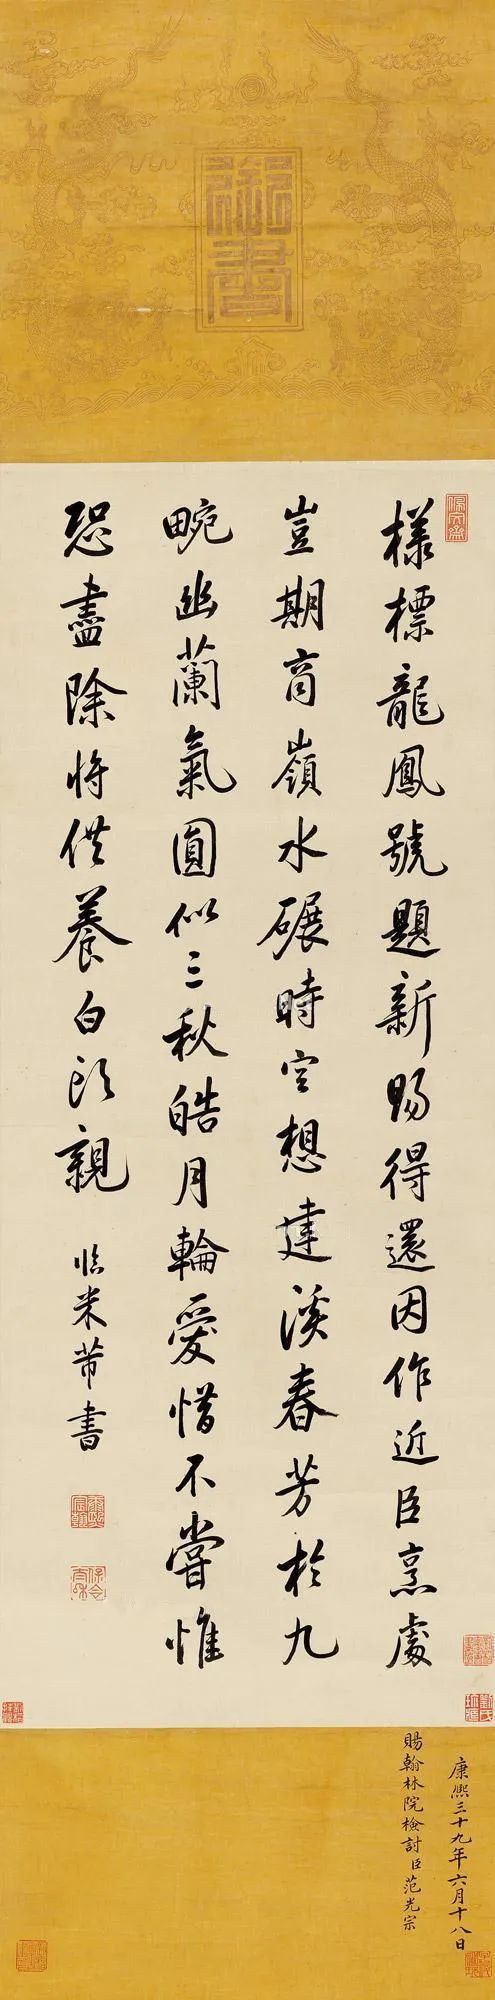 御書
佩文齋
樣標龍鳳號題新賜得還因作近臣烹處
豈期商嶺水碾時空想建溪春芳於九
畹幽蘭氣圓似三秋皓月輪愛惜不嘗惟
恐盡除將供養白頭親
臨米芾書
康熙宸翰
保合太和
康熙三十九年六月十八日
賜翰林院檢討臣范光宗